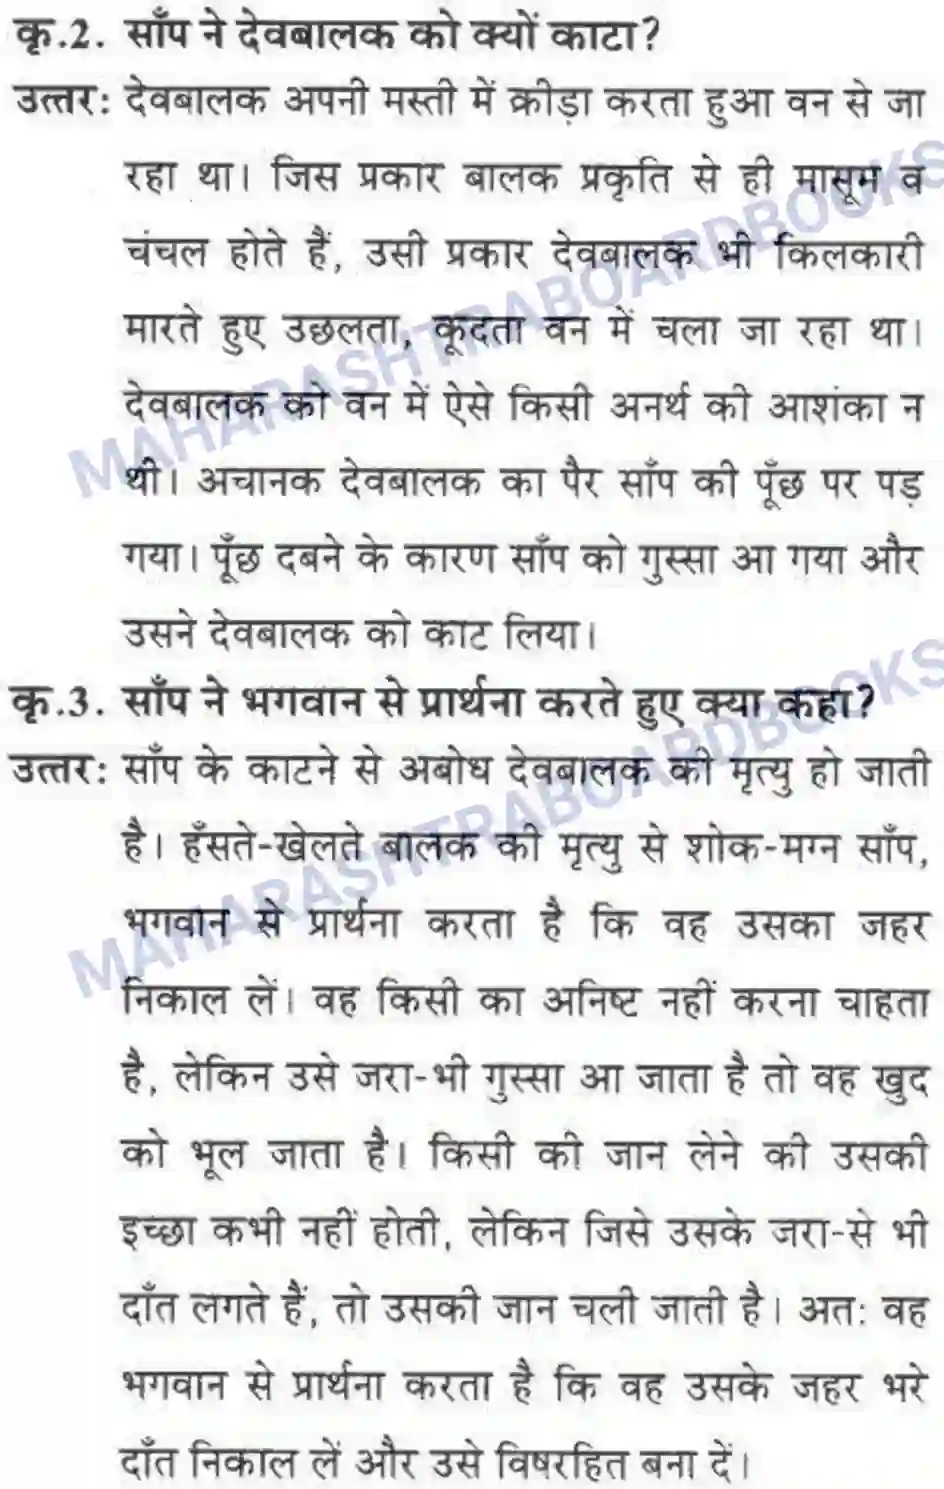 कृ.2. साँप ने देवबालक को क्यों काटा?
उत्तर: देवबालक अपनी मस्ती में क्रीड़ा करता हुआ वन से जा
रहा था। जिस प्रकार बालक प्रकृति से ही मासूम व
चंचल होते हैं, उसी प्रकार देवबालक भी किलकारी
मारते हुए उछलता, कूदता वन में चला जा रहा था।
देवबालक को वन में ऐसे किसी अनर्थ की आशंका न
थी। अचानक देवबालक का पैर साँप की पूँछ पर पड़
गया। पूँछ दबने के कारण साँप को गुस्सा आ गया और
उसने देवबालक को काट लिया।
कृ.3. साँप ने भगवान से प्रार्थना करते हुए क्या कहा?
उत्तर: साँप के काटने से अबोध देवबालक की मृत्यु हो जाती
है। हँसते-खेलते बालक की मृत्यु से शोक-मग्न साँप,
भगवान से प्रार्थना करता है कि वह उसका जहर
निकाल लें। वह किसी का अनिष्ट नहीं करना चाहता
है, लेकिन उसे जरा-भी गुस्सा आ जाता है तो वह खुद
को भूल जाता है। किसी की जान लेने की उसकी
इच्छा कभी नहीं होती, लेकिन जिसे उसके जरा-से भी
दाँत लगते हैं, तो उसकी जान चली जाती है। अत: वह
भगवान से प्रार्थना करता है कि वह उसके जहर भरे
दाँत निकाल लें और उसे विषरहित बना दें।
MAHARASHTRABOARDBOOKS
MAHARASHTRABOARDBOOKS